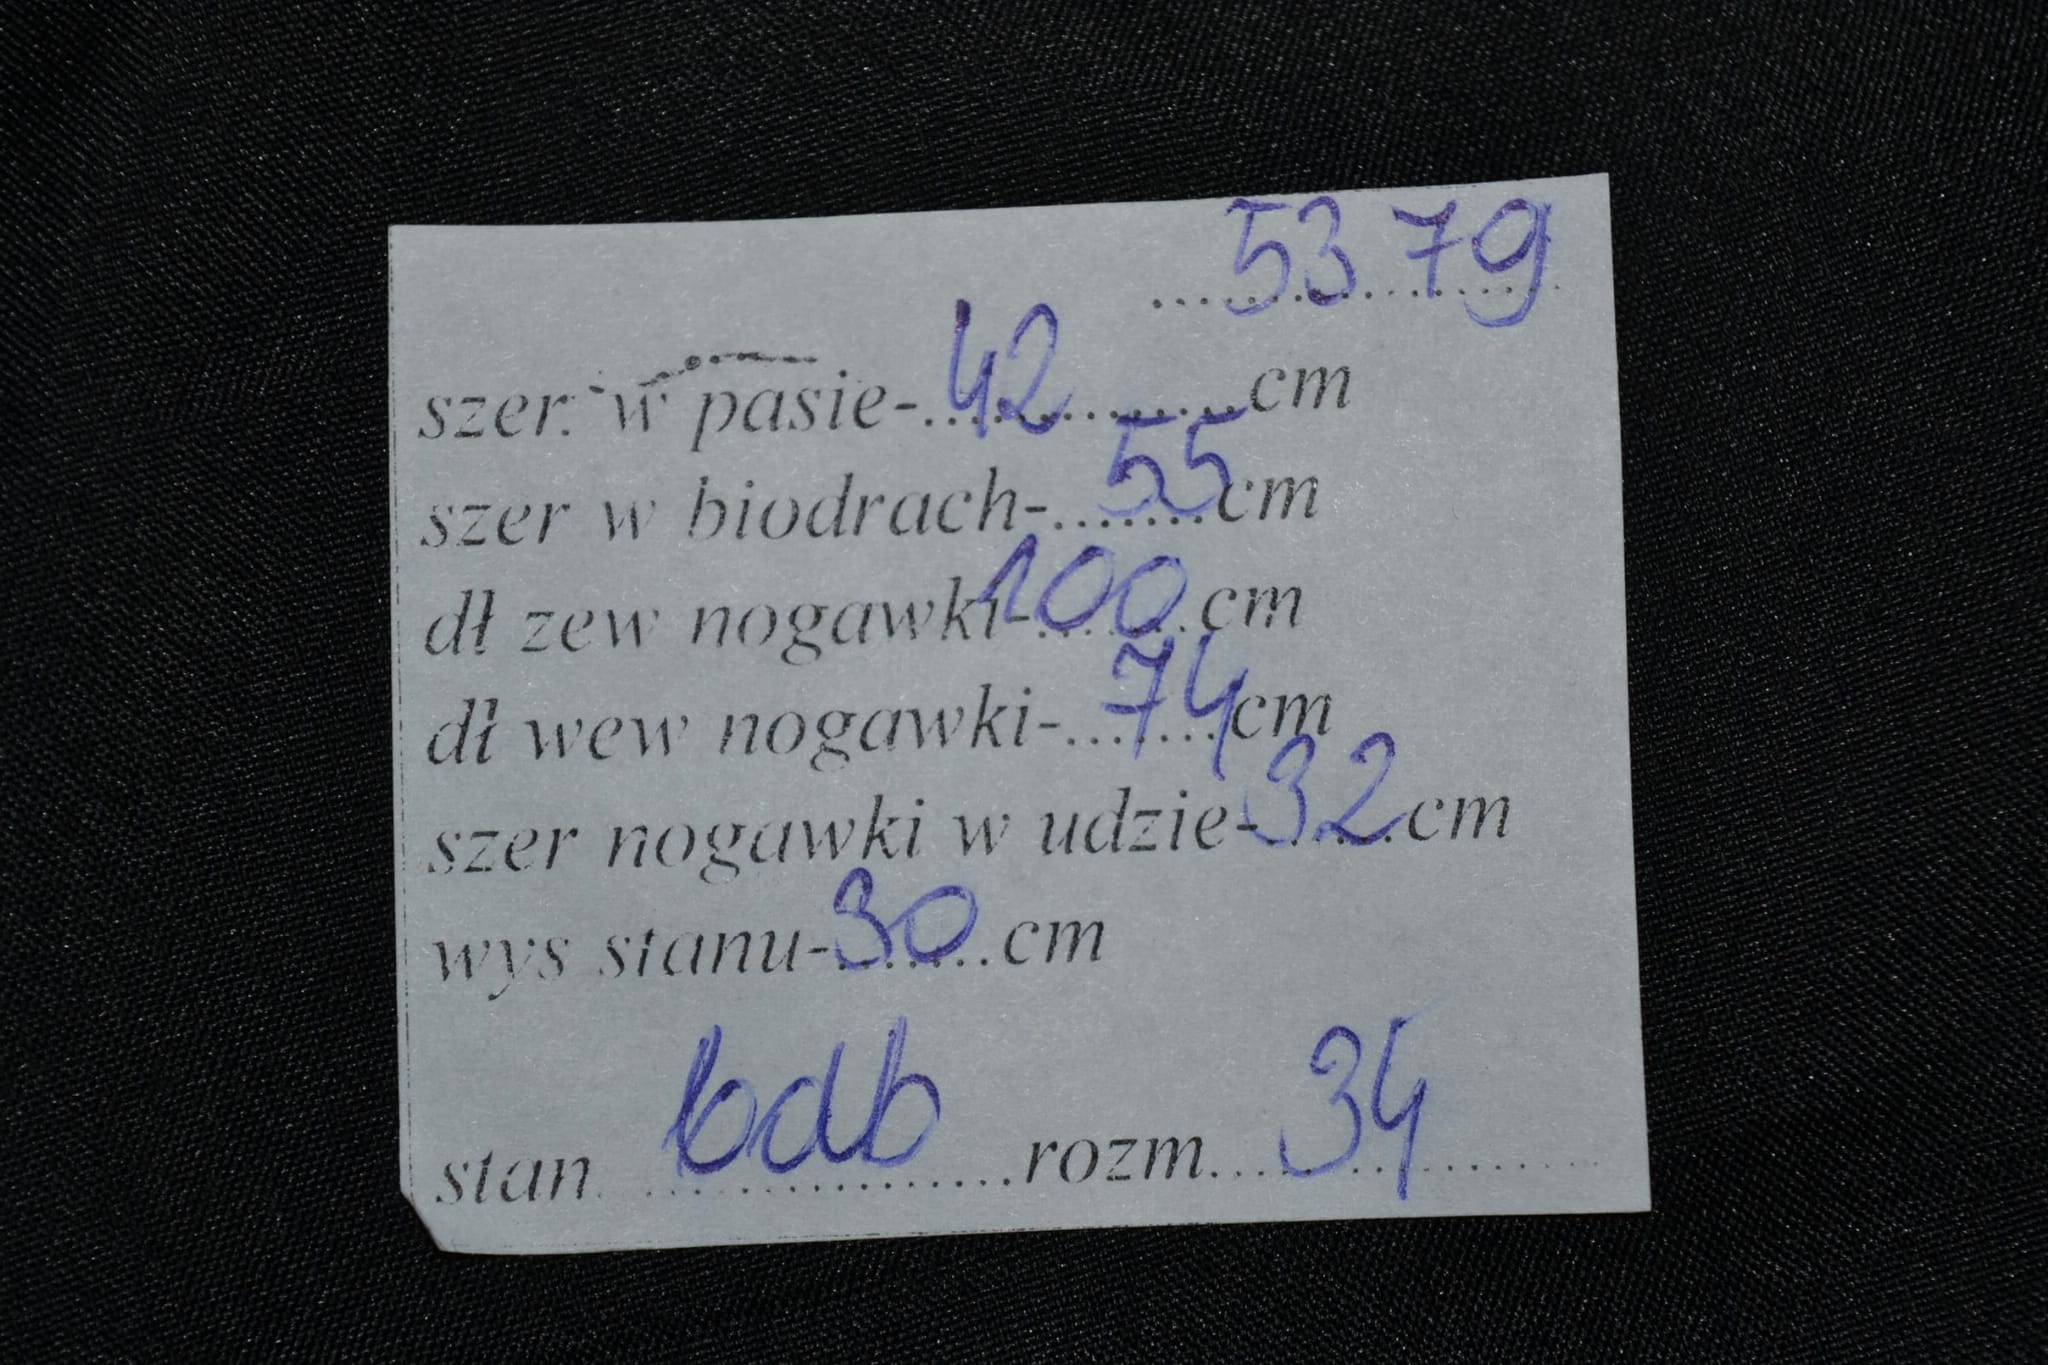 5379
szer. w pasie-.42...............cm
szer w biodrach-.55......cm
dł zew nogawki-100.......cm
dł wew nogawki-.74......cm
szer nogawki w udzie-32.....cm
wys stanu-30......cm
stan bdb ................rozm. 34 ................